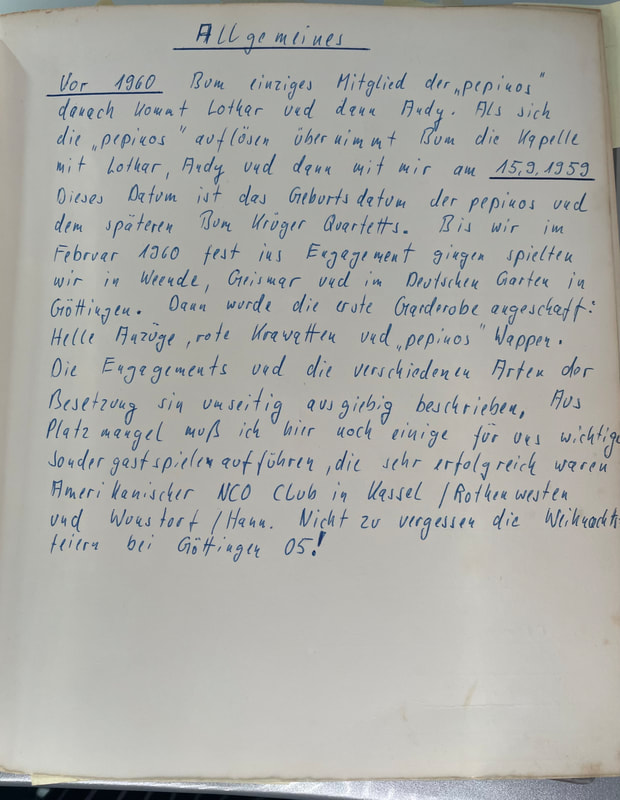 Allgemeines
Vor 1960 Bum einziges Mitglied der „pepinos"
danach kommt Lothar und dann Andy. Als sich
die „pepinos" auflösen übernimmt Bum die Kapelle
mit Lothar, Andy und dann mit mir am 15.9.1959
Dieses Datum ist das Geburtsdatum der pepinos und
dem späteren Bum Krüger Quartetts. Bis wir im
Februar 1960 fest ins Engagement gingen spielten
wir in Weende, Geismar und im Deutschen Garten in
Göttingen. Dann wurde die erste Garderobe angeschaft:
Helle Anzüge, rote Krawatten und „pepinos" Wappen.
Die Engagements und die verschiedenen Arten der
Besetzung sin umseitig ausgiebig beschrieben. Aus
Platzmangel muß ich hier noch einige für uns wichtige
Sondergastspielen aufführen, die sehr erfolgreich waren
Amerikanischer NCO Club in Kassel / Rothenwesten
und Wunstorf / Hann. Nicht zu vergessen die Weihnachts-
feiern bei Göttingen 05!